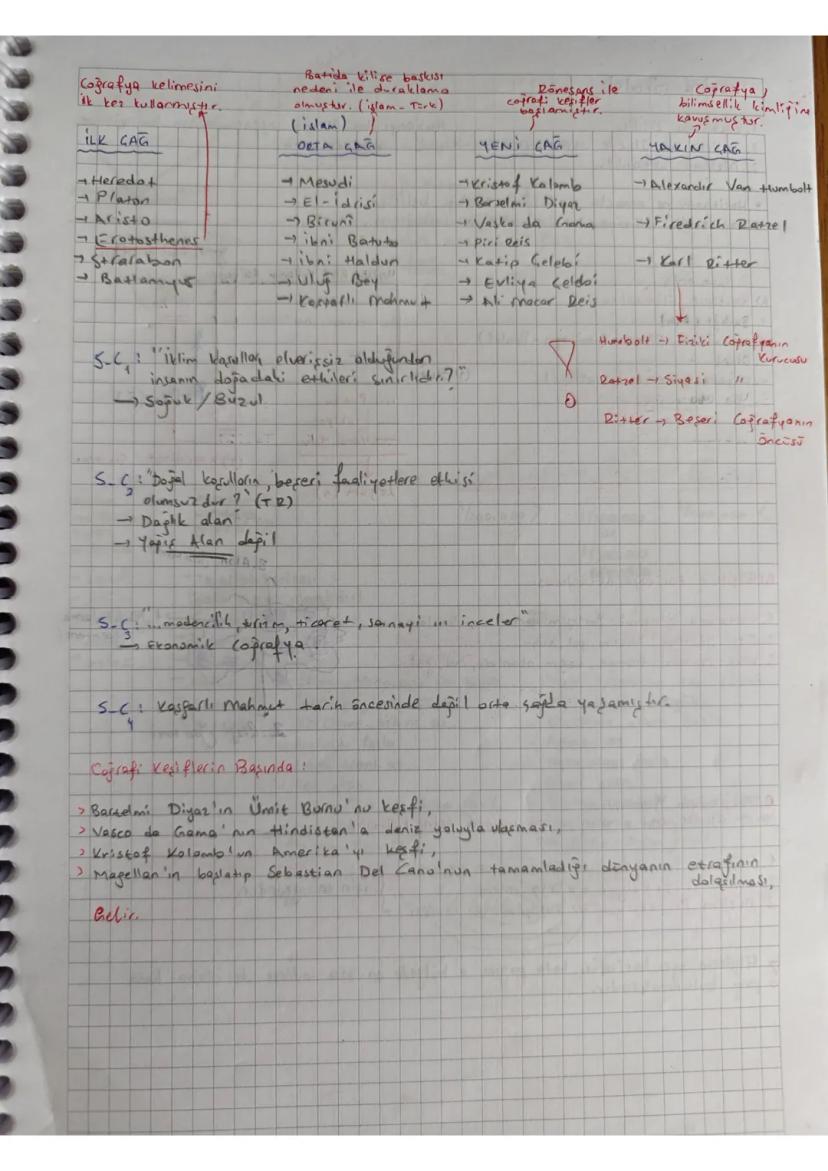 Coğrafya kelimesini
ilk kez kullanmıştır.
Batıda kilise baskısı
nedeni ile duraklama
olmuştur. (islam-Türk)
(islam)
Rönesans ile
coğrafi keşifler
başlamıştır.
Coğrafya,
bilimsellik kimliğine
kavuşmuştur.
İLK ÇAĞ
→ Heredot
→ Platon
→ Aristo
→ Eratosthenes
→ Strarabon
→ Batlamyus
ORTA ÇAĞ
→ Mesudi
→ El-İdrisi
→ Biruni
→ ibni Batuta
→ ibni Haldun
→ Uluğ Bey
→ Kaşgarlı Mahmut
YENİ ÇAĞ
→ Kristof Kolomb
→ Bartelmi Diyaz
→ Vasko da Gama
→ Piri Reis
→ Katip Çelebi
→ Evliya Çelebi
→ Ali Macar Reis
YAKIN ÇAĞ
→ Alexandır Van Humbolt
→ Firedrich Ratzel
→ Karl Ritter
Humbolt → Fiziki Coğrafyanın
Kurucusu
Ratzel → Siyasi "
Ritter → Beşeri Coğrafyanın
öncüsü
S-C1: "İklim koşulları elverişsiz olduğundan
insanın doğadaki etkileri sınırlıdır?"
→ Soğuk / Buzul
S-C2: "Doğal koşulların, beşeri faaliyetlere etkisi
olumsuzdur?" (TR)
→ Dağlık alan
→ Yağış Alan değil
S-C3: "...madencilik, turizm, ticaret, sanayi ... inceler"
→ Ekonomik Coğrafya.
S-C4: Kaşgarlı Mahmut tarih öncesinde değil orta çağda yaşamıştır.
Coğrafi Keşiflerin Başında:
> Bartelmi Diyaz'ın Ümit Burnu'nu keşfi,
> Vasco da Gama'nın Hindistan'a deniz yoluyla ulaşması,
> Kristof Kolomb'un Amerika'yı keşfi,
> Magellan'ın başlatıp Sebastian Del Cano'nun tamamladığı dünyanın etrafının
dolaşılması,
Gelir.